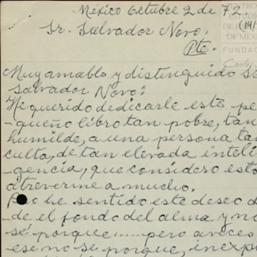 Mexico Octubre 2 de 72.
Sr. Salvador Novo.
Pte.
Muy amable y distinguido Sr
Salvador Novo:
He querido dedicarle este pe-
queño libro tan pobre, tan
humilde, a una persona tan
culta, de tan elevada inteli-
gencia, que considero esto
atreverme a mucho.
he sentido este deseo d
de el fondo del alma y no
sé porque..... pero aveces
ese no se porque, inexp
FUNDA